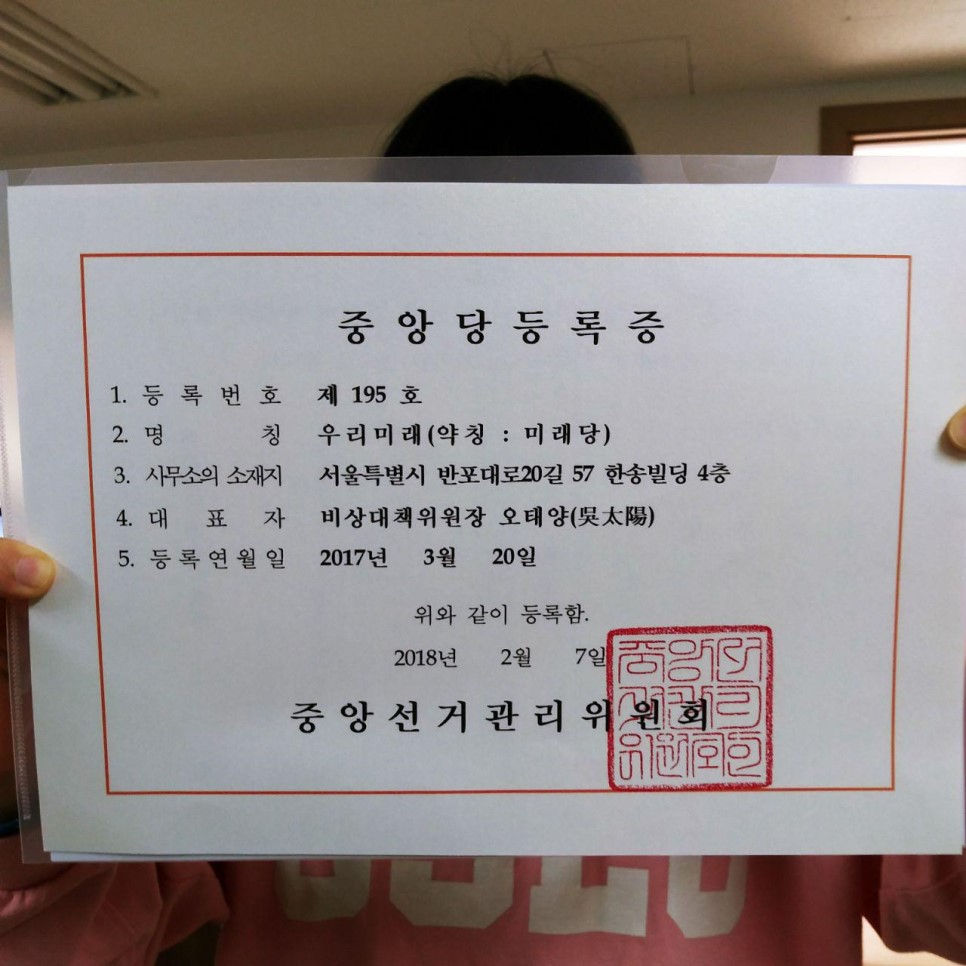 중앙당등록증
1. 등록번호 제 195 호
2. 명칭 우리미래(약칭 : 미래당)
3. 사무소의 소재지 서울특별시 반포대로20길 57 한송빌딩 4층
4. 대표자 비상대책위원장 오태양(吳太陽)
5. 등록연월일 2017년 3월 20일
위와 같이 등록함.
2018년 2월 7일
중앙선거관리위원회